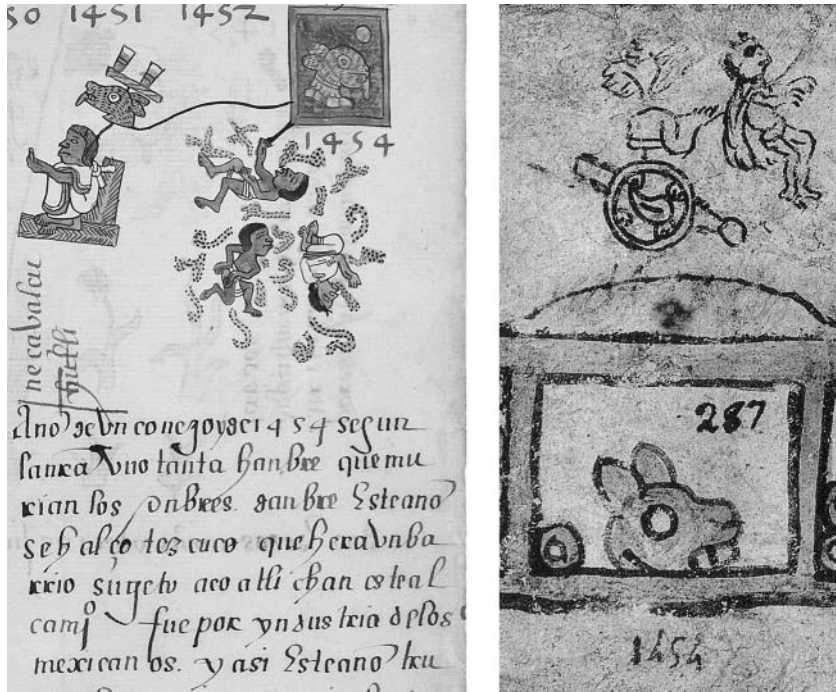 50 1451 1452
1454
necavalcu
Año de vn conejo y de 1454 segun
vuo tanta hanbre que mu
rian los onbres. danbre Este año
se halço tezcuco que hera vn ba
rrio sugeto a coatlichan
fue por yndustria de los
mexicanos. y asi Este año
287
1454